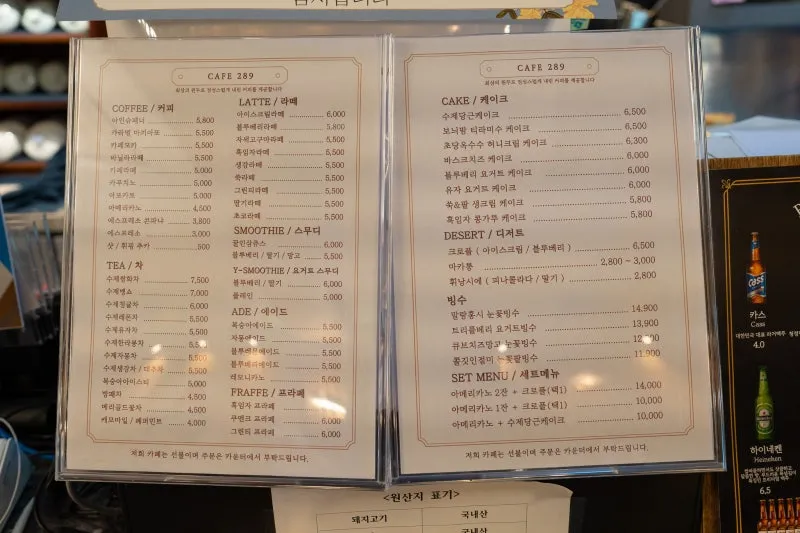 CAFE 289
최상의 원두로 정성스럽게 내린 커피를 제공합니다
COFFEE / 커피
아인슈페너 5,800
카라멜 마키아또 5,500
카페모카 5,500
바닐라라떼 5,500
카페라떼 5,000
카푸치노 5,000
아포카토 5,000
아메리카노 4,500
에스프레소 콘파냐 3,800
에스프레소 3,000
샷 / 휘핑 추가 500
TEA / 차
수제쌍화차 7,500
7,000
6,000
수제레몬차 5,500
수제유자차 5,500
수제한라봉차 5,500
수제자몽차 5,500
수제생강차 / 대추차 5,500
복숭아아이스티 5,000
4,500
메리골드꽃차 4,500
캐모마일 / 페퍼민트 4,000
LATTE / 라떼
아이스크림라떼 6,000
블루베리라떼 5,800
자색고구마라떼 5,500
흑임자라떼 5,500
생강라떼 5,500
쑥라떼 5,500
그린티라떼 5,500
딸기라떼 5,500
초코라떼 5,500
SMOOTHIE / 스무디
꿀인삼쥬스 6,000
블루베리 / 딸기 / 망고 5,500
Y-SMOOTHIE / 요거트 스무디
블루베리 / 딸기 6,000
플레인 5,000
ADE / 에이드
복숭아에이드 5,500
자몽에이드 5,500
블루레몬에이드 5,500
블루베리에이드 5,500
레모니카노 5,500
FRAFFE / 프라페
흑임자 프라페 6,000
쿠앤크 프라페 6,000
그린티 프라페 6,000
저희 카페는 선불이며 주문은 카운터에서 부탁드립니다.
CAFE 289
최상의 원두로 정성스럽게 내린 커피를 제공합니다
CAKE / 케이크
수제당근케이크 6,500
보늬밤 티라미수 케이크 6,500
초당옥수수 허니크림 케이크 6,300
바스크치즈 케이크 6,000
블루베리 요거트 케이크 6,000
유자 요거트 케이크 6,000
쑥&팥 생크림 케이크 5,800
흑임자 콩가루 케이크 5,800
DESERT / 디저트
크로플 ( 아이스크림 / 블루베리 ) 6,500
마카롱 2,800 - 3,000
휘낭시에 ( 피나콜라다 / 딸기 ) 2,800
빙수
말랑홍시 눈꽃빙수 14,900
트리플베리 요거트빙수 13,900
큐브치즈망고 눈꽃빙수
콩깃인절미 눈꽃팥빙수 11,900
SET MENU / 세트메뉴
아메리카노 2잔 + 크로플(택1) 14,000
아메리카노 1잔 + 크로플(택1) 10,000
아메리카노 + 수제당근케이크 10,000
저희 카페는 선불이며 주문은 카운터에서 부탁드립니다.
<원산지 표기>
돼지고기 국내산
국내산
Cass
카스
Cass
4.0
하이네켄
Heineken
6.5